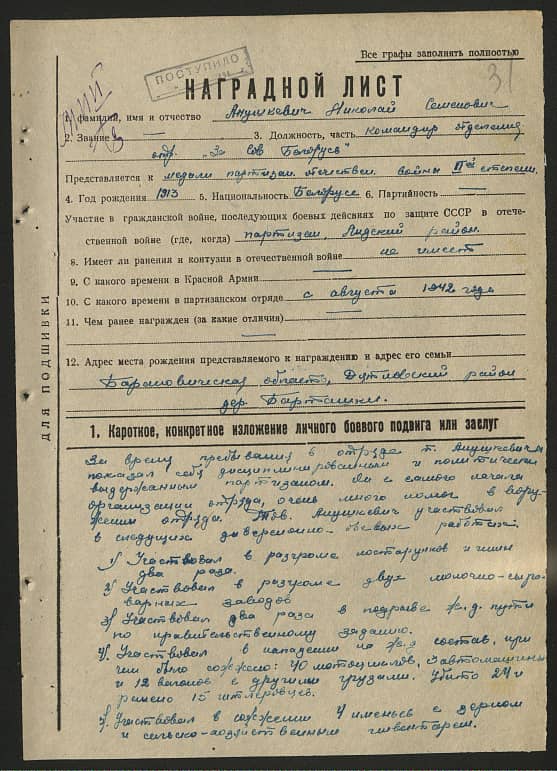 Все графы заполнять полностью
ПОСТУПИЛО
31
НАГРАДНОЙ ЛИСТ
1. фамилия, имя и отчество Анушкевич Николай Семенович
2. Звание — 3. Должность, часть командир отделения,
отр. "За Сов Белорусь"
Представляется к медали партизан. отечествен. войны IIй степени.
4. Год рождения 1913 5. Национальность Белорусс 6. Партийность —
Участие в гражданской войне, последующих боевых действиях по защите СССР в отече-
ственной войне (где, когда) партизан, Лидский район.
8. Имеет ли ранения и контузии в отечественной войне не имеет
9. С какого времени в Красной Армии —
10. С какого времени в партизанском отряде с августа 1942 года
11. Чем ранее награжден (за какие отличия) —
12. Адрес места рождения представляемого к награждению и адрес его семьи
Барановическая область, Дятловский район
дер. Барташки.
ДЛЯ ПОДШИВКИ
1. Короткое, конкретное изложение личного боевого подвига или заслуг
За время пребывания в отряде т. Анушкевич
показал себя дисциплинированным и политически
выдержанным партизаном. Он с самого начала
организации отряда, очень много помог в воору-
жении отряда. Тов. Анушкевич участвовал
в следущих диверсионно-боевых работах.
1) Участвовал в разгроме постарунков и гмин
два раза.
2) Участвовал в разгроме двух молочно-сыро-
варных заводов
3) Участвовал два раза в подрыве ж.д. пути
по правительственному заданию.
4) Участвовал в нападении на ж.д состав, при
чем было сожжено: 40 мотоциклов, 3 автомашины
и 12 вагонов с другими грузами. Убито 24 и
ранено 15 гитлеровцев.
5) Участвовал в сожжении 4 именьев с зерном
и сельско-хозяйственным инвентарем.